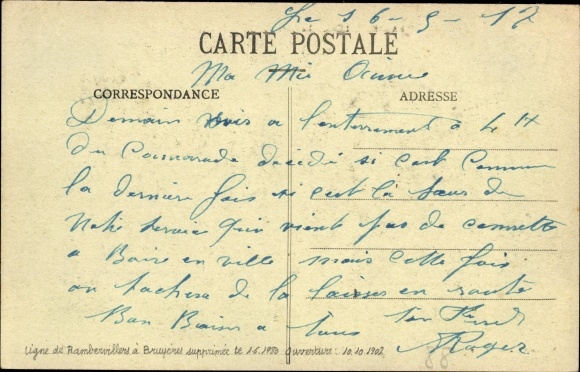 Le 16-5-17
CARTE POSTALE
Ma Mie
CORRESPONDANCE
ADRESSE
Demain vais a l'enterrement a 4 H
du Camarade décédé si c'est Comme
la derniere fois si c'est la Sœur de
Notre qui vient pas de
a Boire en ville mais cette fois
on tachera de la laisser en route
Bon Baiser a tous ton
Roger
Ligne de Rambervillers à Bruyères supprimée le 1.6.1950 Ouverture: 10.10.1902
88